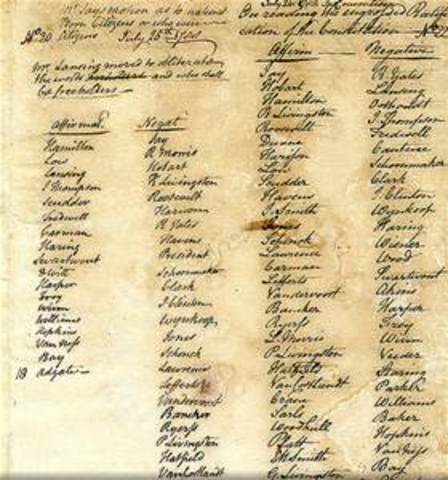 Mr Jays motion as to natural
Born Citizens or who were
No 20 Citizens July 25th 1788
Mr. Lansing moved to obliterate
the words and who shall
be freeholders
Affirmat.
Hamilton
Low
Lansing
I Thompson
Scudder
Tredwell
Carman
Haring
Swartwout
DWitt
Harper
Frey
Winn
Williams
Hopkins
Van Ness
Bay
18 Adgate
Negat
Jay
R Morris
Hobart
R Livingston
Roosevelt
Harison
R Yates
Havens
President
Schoonmaker
Clark
J Clinton
Wynkoop
Jones
Schenck
Lawrence
Lefferts
Vandervoort
Bancker
Ryerss
P Livingston
Hatfield
Van Cortlandt
On reading the engrossed Ratifi
cation of the Constitution
Affirm
Jay
Hobart
Hamilton
R Livingston
Roosevelt
Duane
Harison
Low
Scudder
Havens
J. Smith
Jones
Schenck
Lawrence
Carman
Lefferts
Vandervoort
Bancker
Ryerss
L. Morris
P. Livingston
Hatfield
Van Cortlandt
Crane
Sarls
Woodhull
Platt
M Smith
G. Livingston
Negative
R. Yates
Lansing
Outhoudt
I. Thompson
Tredwell
Cantine
Schoonmaker
Clark
J. Clinton
Wynkoop
Haring
Wisner
Wood
Swartwout
Akins
Harper
Frey
Winn
Veeder
Staring
Parker
Williams
Baker
Hopkins
Van Ness
Bay